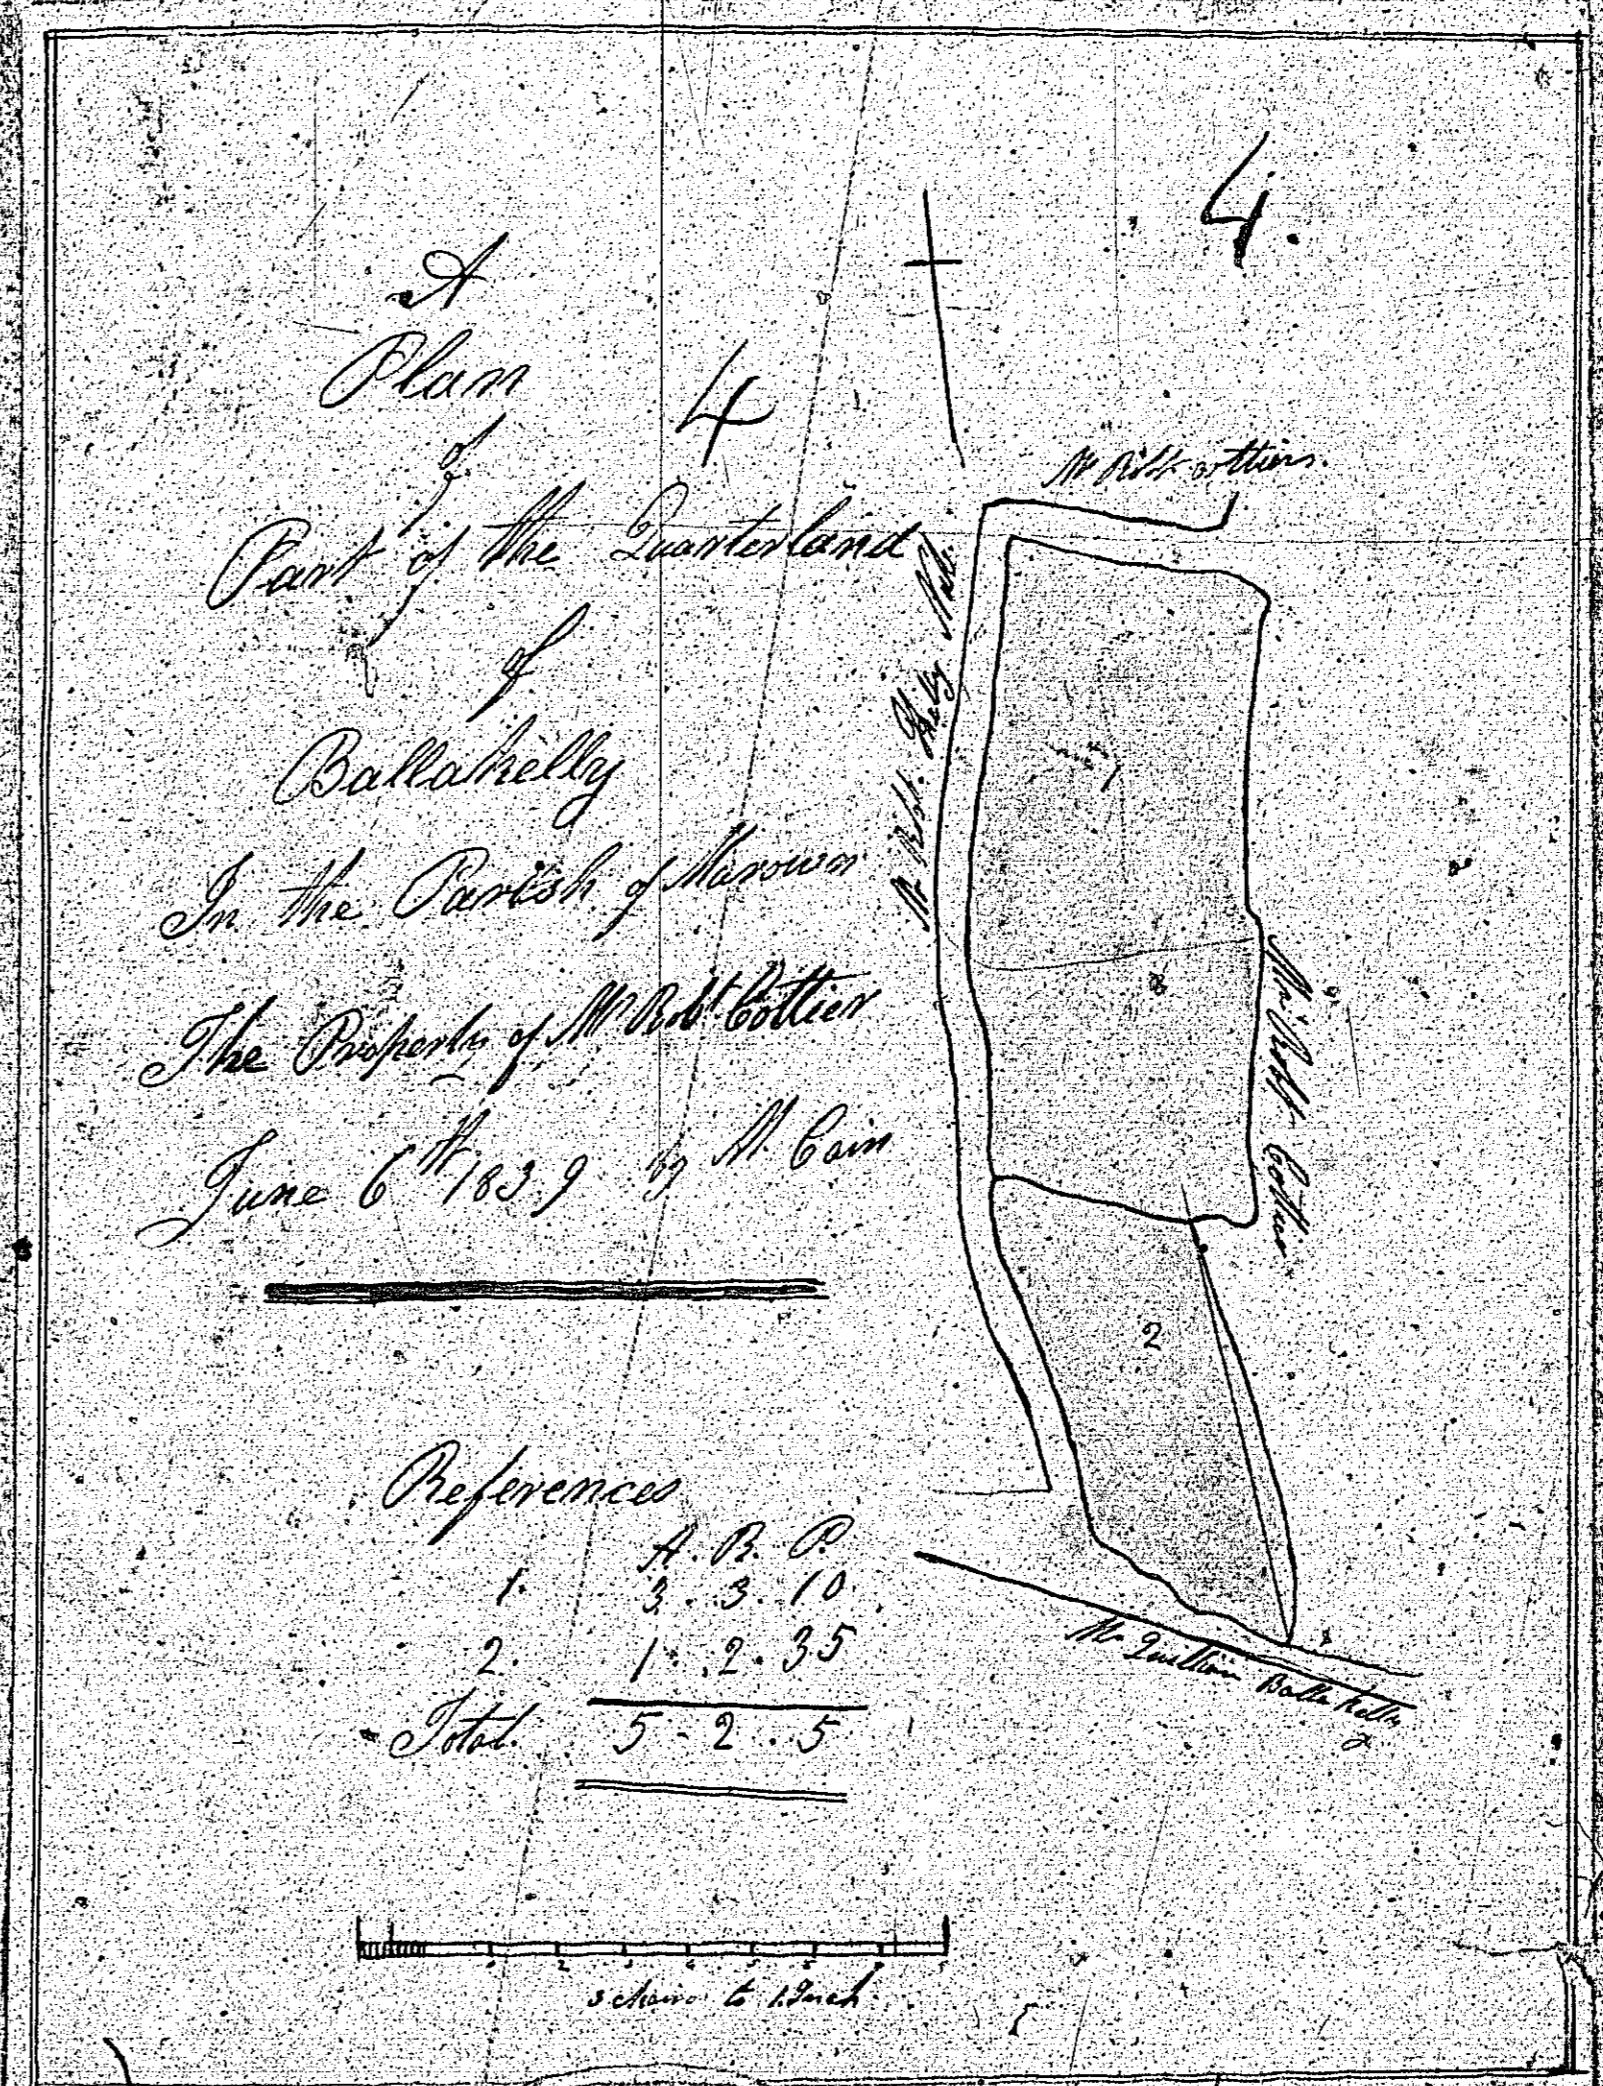 4.
A
Plan
4
of
Part of the Quarterland
of
Ballakelly
In the Parish of Marown
The Property of Mr Robt Cottier
June 6th 1839 by M. Cain
Mr Robt Cottiers.
Mr Robt. Kelly
1
Mr Robt Cottier
2
Mr Quilliam Balla kelly
References
A. R. P.
1. 3. 3. 10
2. 1. 2. 35
Total. 5 - 2 . 5
3 chains to 1 Inch